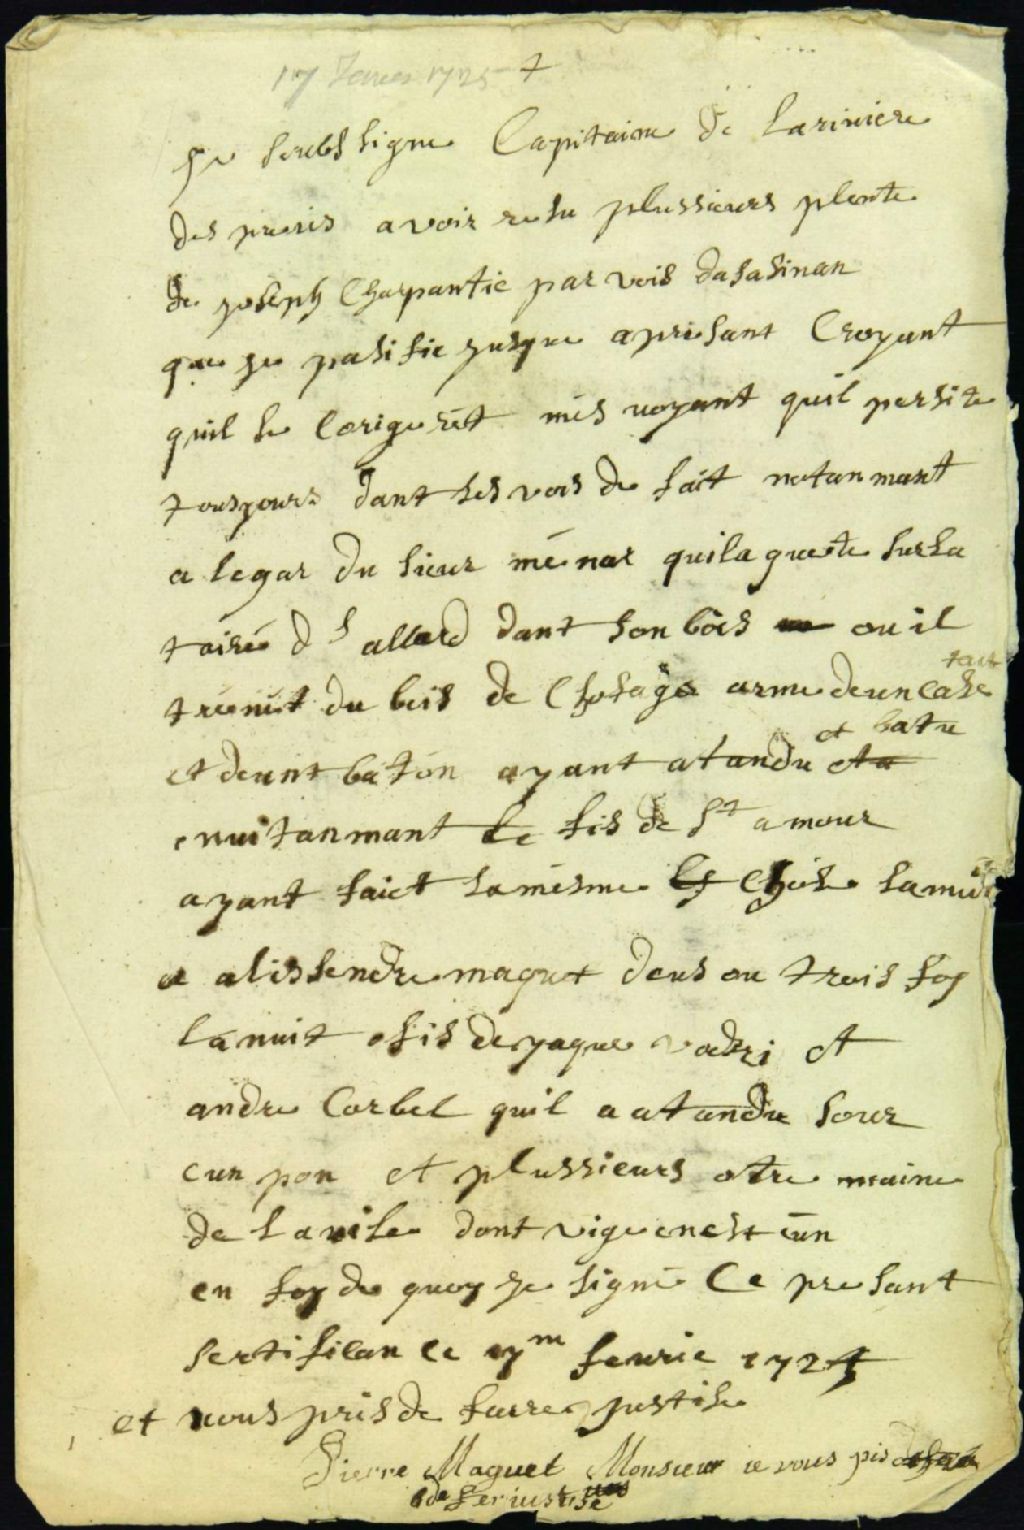 17 1725 +
Je soubssigne Capitaine de Lariviere
des preris avoir resu plussieurs plente
de Joseph Charpantie par vois dasasinan
que je pasifie jusque apresant Croyant
quil se Corigerèt mès voyant quil persite
tousjours dant ses vois de fait notanmant
a legar du sieur mènar quila guete sur la
tairé d s allard dant son bois ou il
trènèt du bois de Chofage arme deun Case tait
et deunt baton ayant atandu et batu
nuitanmant le fis de St amour
ayant faict la mesme Chose
a alissendre maquet deus ou trois foy
la nuit ofis de jaque et
andre Corbel quil a atandu sour
eun pon et plussieurs otre maime
de la vile dont vige enest eun
en foy de quoy je signe Ce presant
sertifican Ce 17m fevrie 1724
et vous pris de fairre justise
Pierre Maguet Monsieur ie vous pis
de fer iustise